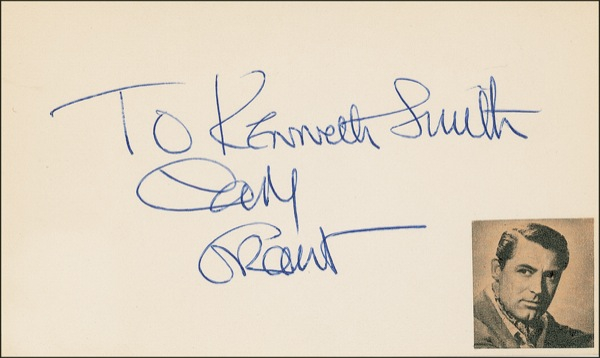 To Kenneth Smith
Cary
Grant